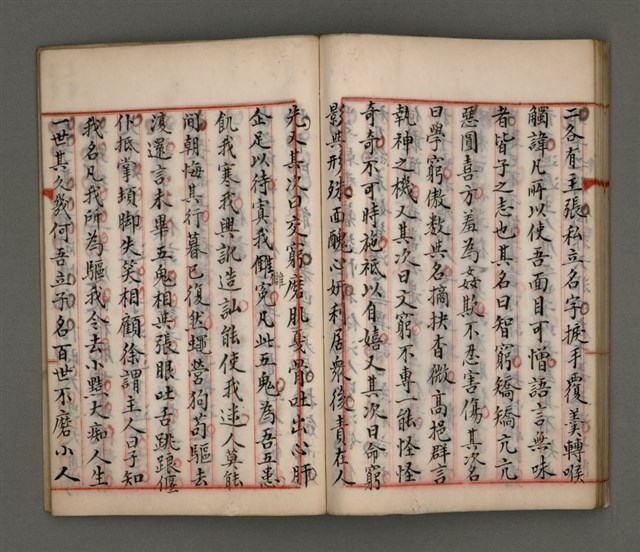 二各有主張私立名字捩手覆羹轉喉
觸諱凡所以使吾面目可憎語言無味
者皆子之志也其名曰智窮矯矯亢亢
惡圓喜方羞為姦欺不忍害傷其次名
曰學窮傲数與名摘抉杳微高挹群言
執神之機又其次曰文窮不專一能怪怪
奇奇不可時施祗以自嬉又其次曰命窮
影與形殊面醜心妍利居眾後責在人
先又其次曰交窮磨肌戛骨吐出心肝
企足以待寘我讎冤凡此五鬼為吾五患
飢我寒我興訛造訕能使我迷人莫能
間朝悔其行暮已復然蠅營狗苟驅去
復還言未畢五鬼相與張眼吐舌跳踉偃
仆抵掌頓脚失笑相顧徐謂主人曰子知
我名凡我所為驅我令去小黠大痴人生
一世其久幾何吾立子名百世不磨小人